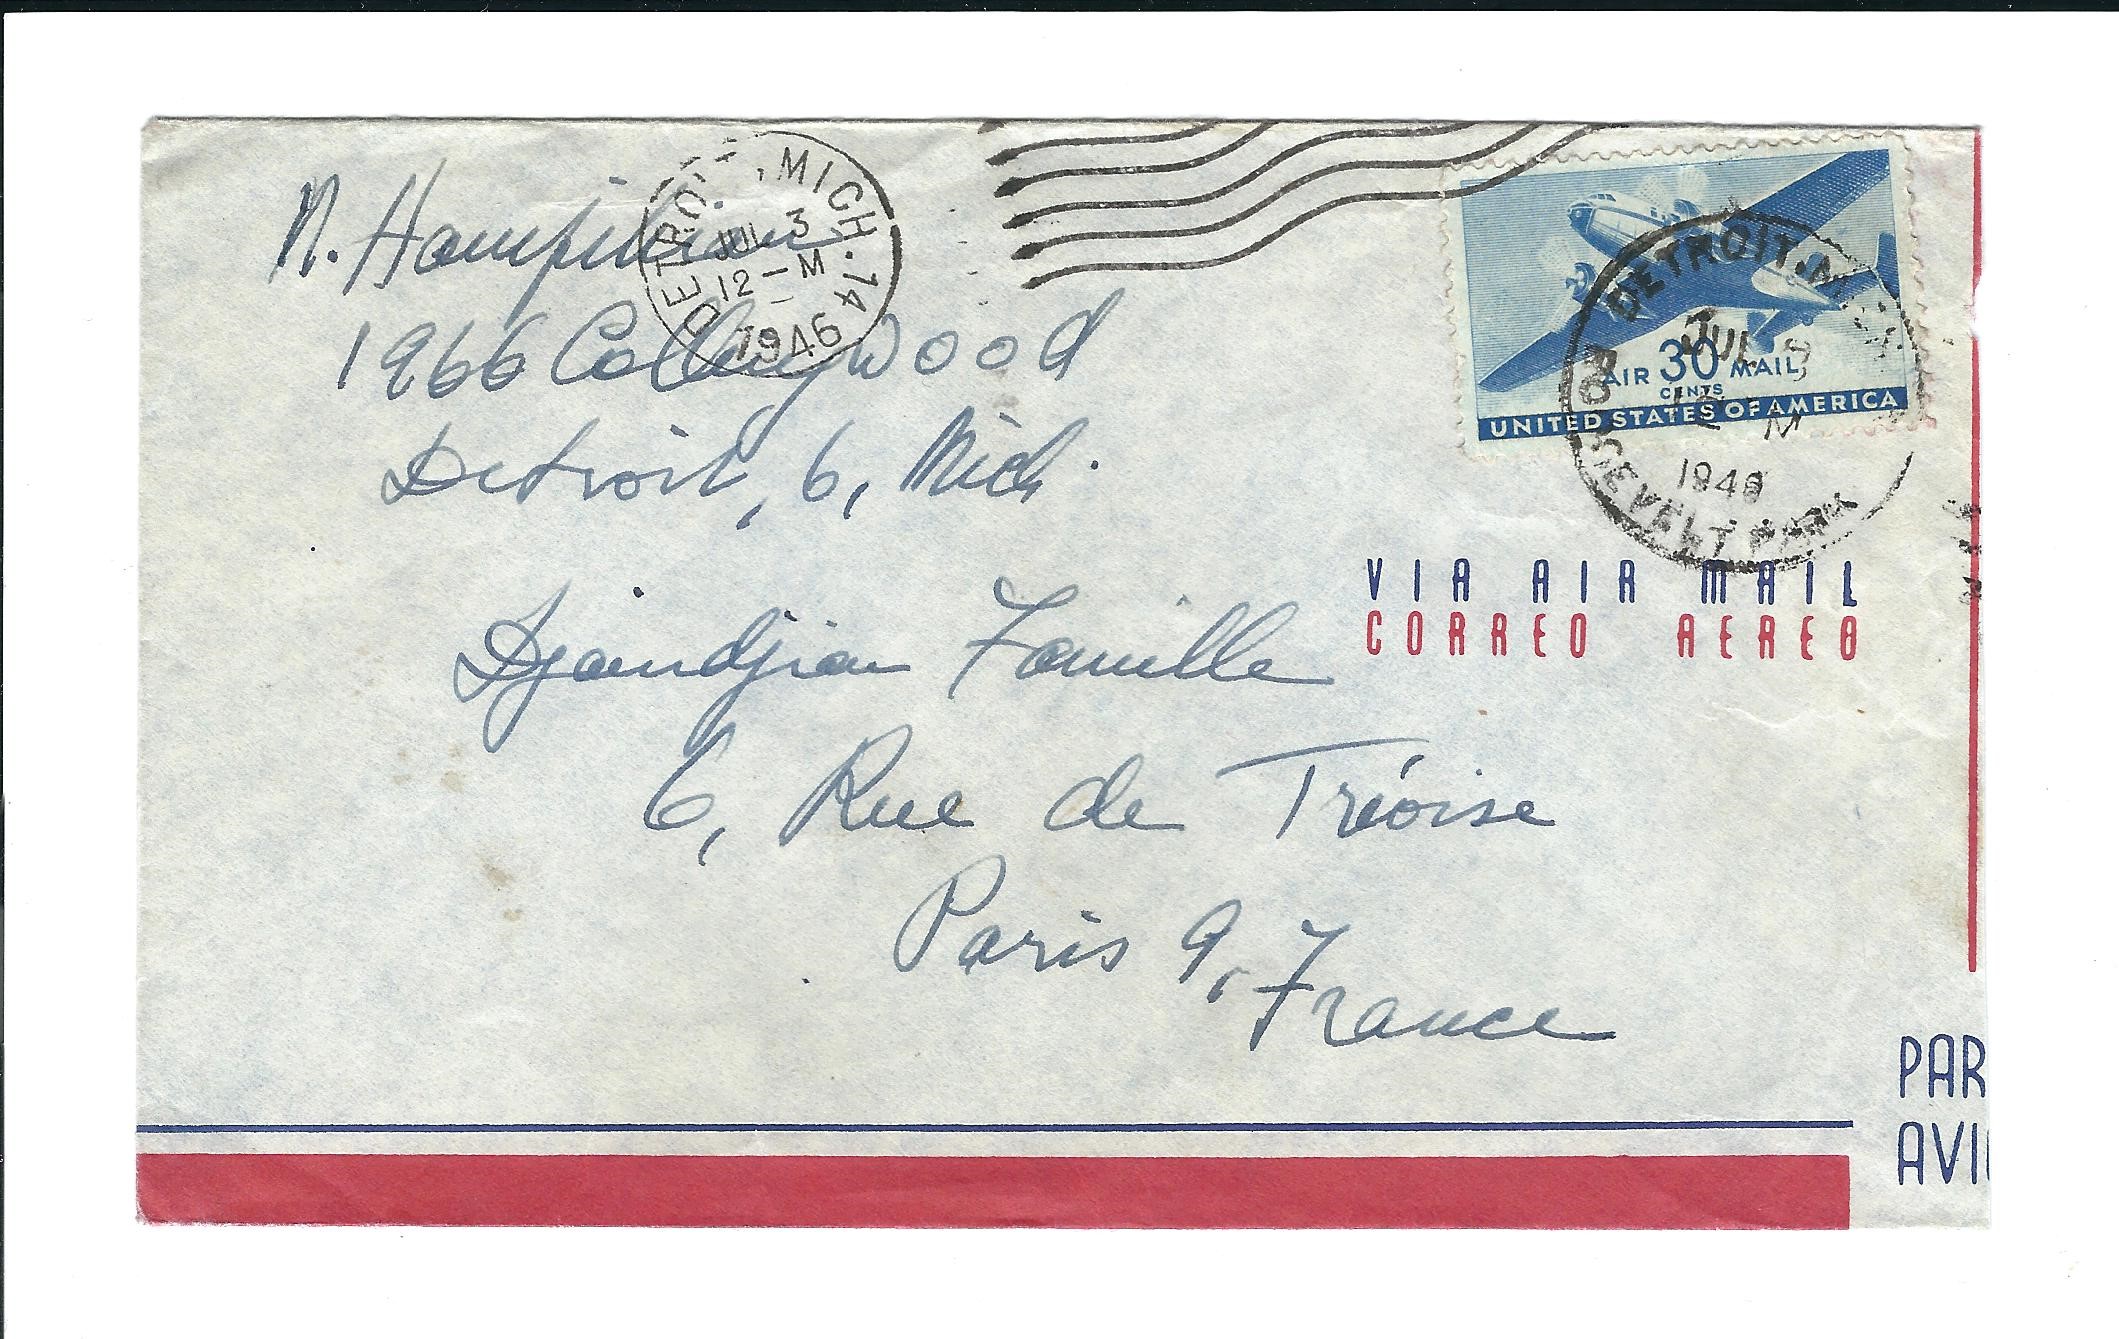 N. Hampikian
1966 Collingwood
Detroit, 6, Mich.
DETROIT, MICH. 14
JUL 3
12 - M
1946
AIR 30 MAIL
CENTS
UNITED STATES OF AMERICA
DETROIT, MICH.
JUL 3
12 M
1946
ROOSEVELT PARK
VIA AIR MAIL
CORREO AEREO
Djaindjian Famille
6, Rue de Tréoise
Paris 9, France
PAR
AVI